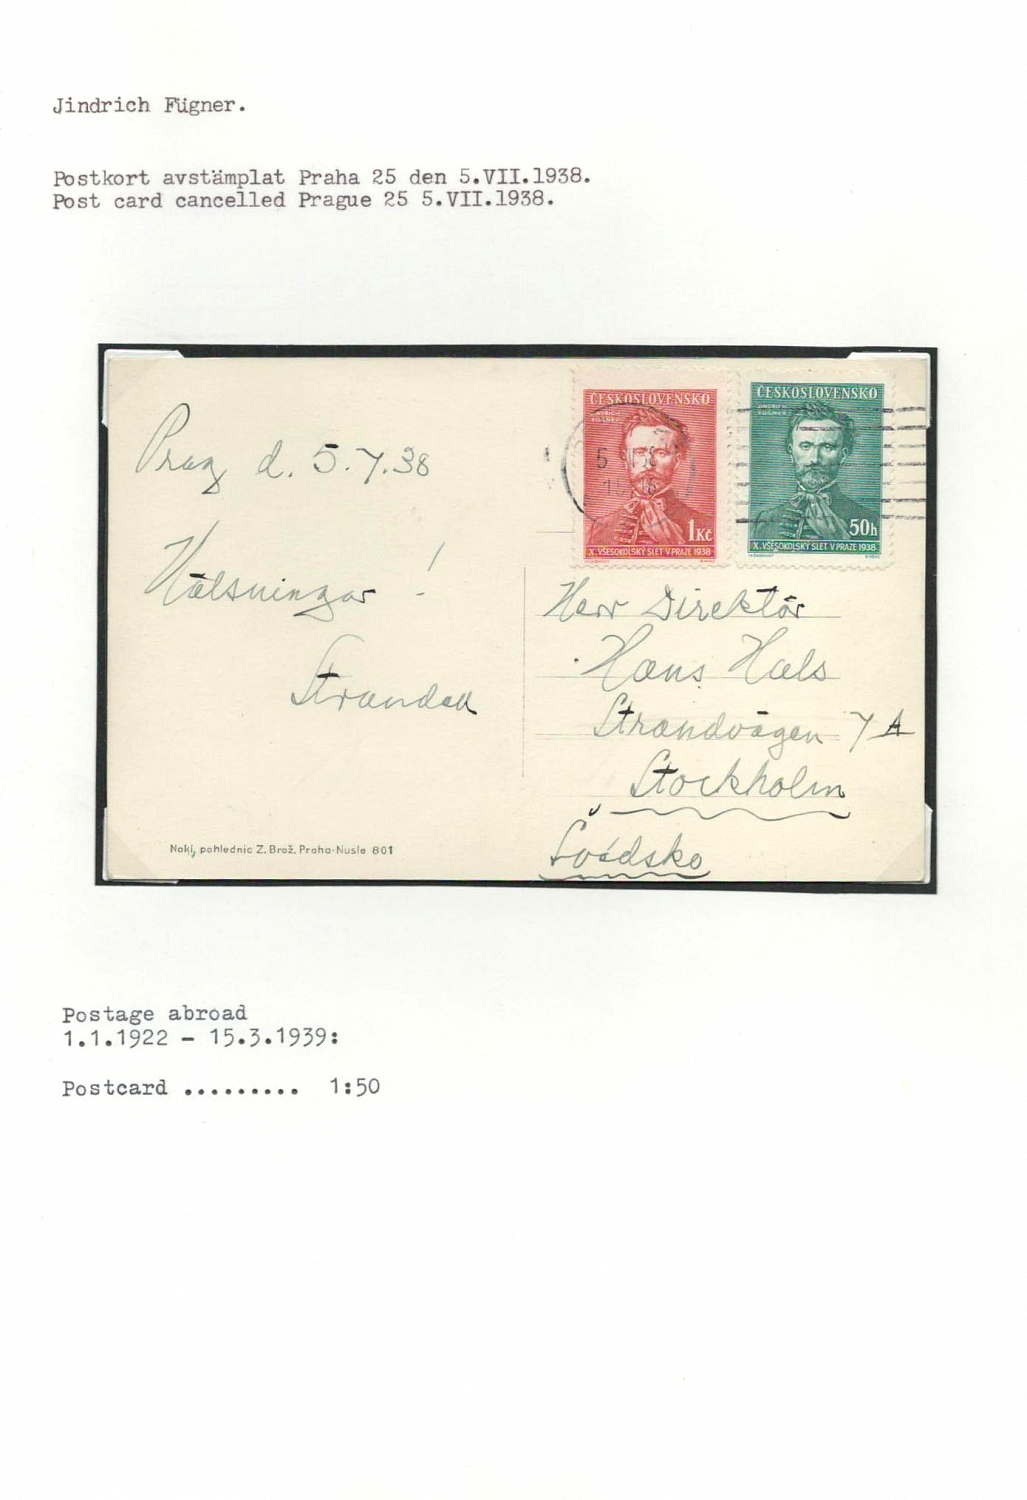 Jindrich Fügner.
Postkort avstämplat Praha 25 den 5.VII.1938.
Post card cancelled Prague 25 5.VII.1938.
Prag d. 5.7.38
Hälsningar !
ČESKOSLOVENSKO
JINDŘICH
FÜGNER
1Kč
X. VŠESOKOLSKÝ SLET V PRAZE 1938
ČESKOSLOVENSKO
JINDŘICH
FÜGNER
50h
X. VŠESOKOLSKÝ SLET V PRAZE 1938
Herr Direktör
Hans Hals
Strandvägen 7 A
Stockholm
Švédsko
Nakl, pohlednic Z. Brož. Praha-Nusle 801
Postage abroad
1.1.1922 - 15.3.1939:
Postcard ......... 1:50